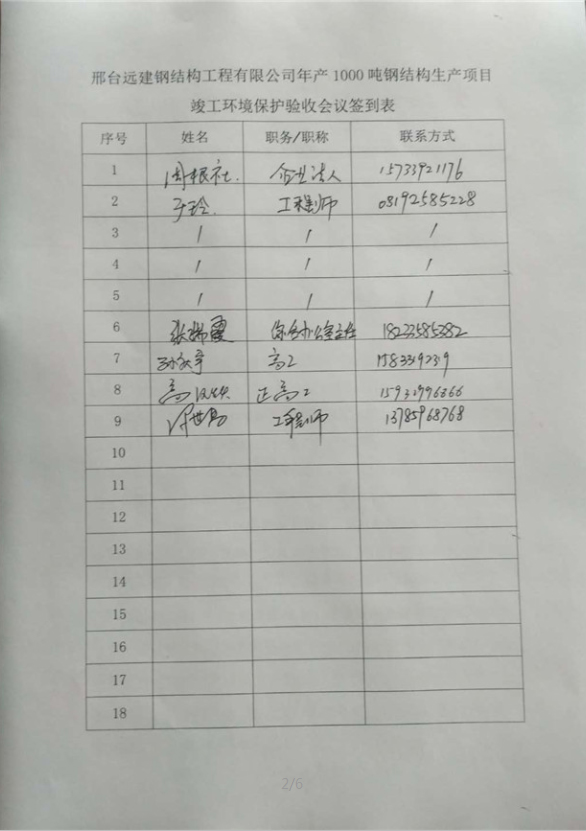 邢台远建钢结构工程有限公司年产1000吨钢结构生产项目
竣工环境保护验收会议签到表
序号 姓名 职务/职称 联系方式
1 周根社 企业法人 15733921176
2 于玲 工程师 08192585228
3 / / /
4 / / /
5 / / /
6 张瑞霞 办公室主任 18233585282
7 高工
8 正高工
9 工程师 13785968768
10
11
12
13
14
15
16
17
18
2/6